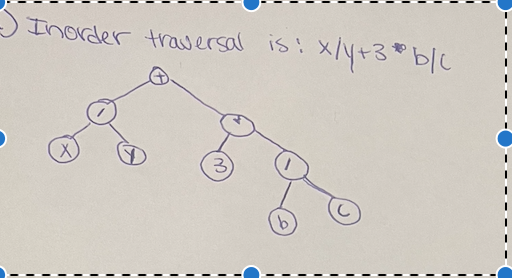 ) Inorder traversal is: x/y+3*b/c
+
/ *
x y 3 /
b c